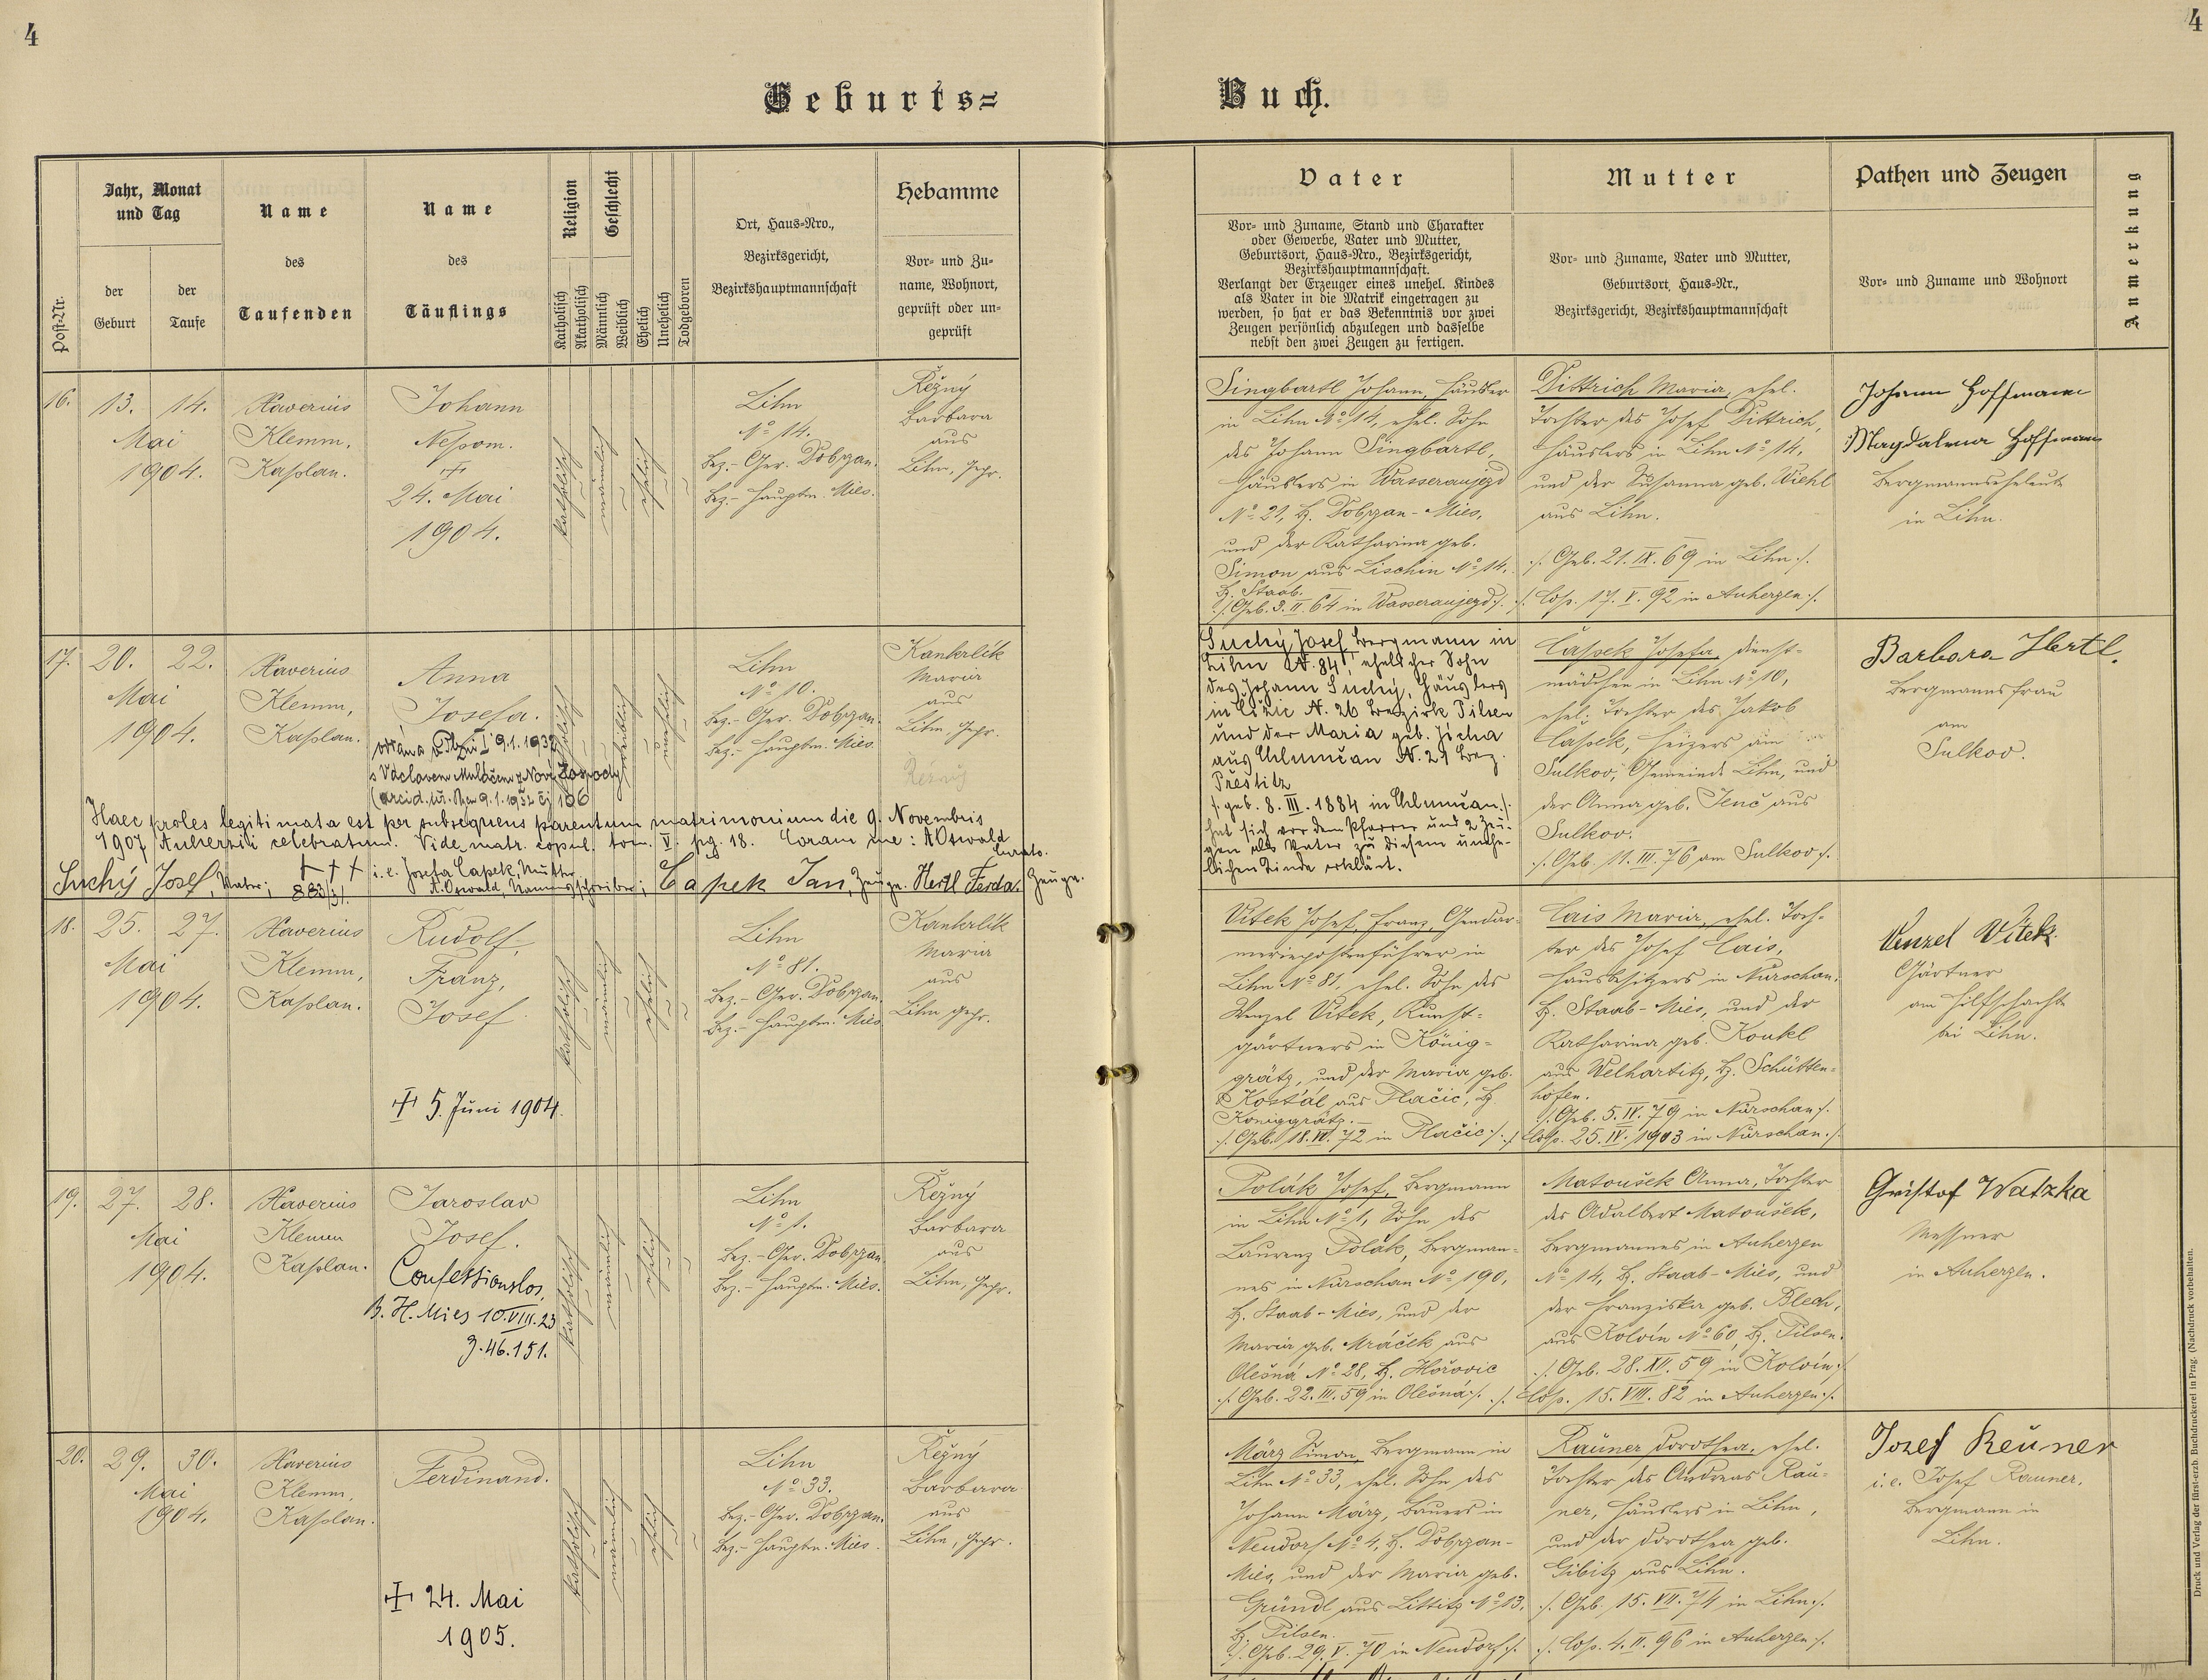 4
4
Geburts=
Buch.
Jahr, Monat
und Tag
Name
Name
Religion
Geschlecht
Hebamme
des
des
Ort, Haus-Nro.,
Bezirksgericht,
Bezirkshauptmannschaft
Vor- und Zu-
name, Wohnort,
geprüft oder un-
geprüft
Post-Nr.
der
Geburt
der
Taufe
Taufenden
Täuflings
Katholisch
Akatholisch
Männlich
Weiblich
Ehelich
Unehelich
Todgeboren
Vater
Mutter
Pathen und Zeugen
Anmerkung
Vor- und Zuname, Stand und Charakter
oder Gewerbe, Vater und Mutter,
Geburtsort, Haus-Nro., Bezirksgericht,
Bezirkshauptmannschaft.
Verlangt der Erzeuger eines unehel. Kindes
als Vater in die Matrik eingetragen zu
werden, so hat er das Bekenntnis vor zwei
Zeugen persönlich abzulegen und dasselbe
nebst den zwei Zeugen zu fertigen.
Vor- und Zuname, Vater und Mutter,
Geburtsort, Haus-Nr.,
Bezirksgericht, Bezirkshauptmannschaft
Vor- und Zuname und Wohnort
16.
13. 14.
Mai
1904.
Xaverius
Klemm,
Kaplan.
Johann
Nepom.
24. Mai
1904.
katholisch
männlich
ehelich
Lihn
No 14.
Bez.- Ger. Dobrzan.
Bez.- Hauptm. Mies.
Řežný
Barbara
aus
Lihn, gepr.
Singbartl Johann, Häusler
in Lihn No 14, ehel. Sohn
des Johann Singbartl,
Häuslers in Wasseraujezd
No 21, B. Dobrzan - Mies,
und der Katharina geb.
Simon aus Lischin No 14.
B. Staab.
/. Geb. 3. II. 64 in Wasseraujezd ./.
Dittrich Maria, ehel.
Tochter des Josef Dittrich,
Häuslers in Lihn No 14,
und der Susanna geb. Wiehl
aus Lihn.
./. Geb. 21. IX. 69 in Lihn ./.
./. Cop. 17. V. 92 in Auherzen ./.
Johann Hoffmann
Magdalena Hoffmann
Bergmannseheleute
in Lihn.
17.
20. 22.
Mai
1904.
Xaverius
Klemm,
Kaplan.
Anna
Josefa.
katholisch
weiblich
unehelich
Lihn
No 10.
Bez.- Ger. Dobrzan.
Bez.- Hauptm. Mies.
Kankrlík
Maria
aus
Lihn, gepr.
s Václavem Muláčem z Nové Hospody
Haec proles legitimata est per subsequens parentum matrimonium die 9. Novembris
1907 Auherzii celebratum. Vide matr. copul. tom. V. pg. 18. Coram me: A Oswald
Curato.
Suchý Josef, Vater; +++ i. e. Josefa Čapek, Mutter
A. Oswald, Namensschreiber; Čapek Jan, Zeuge. Hertl Ferda. Zeuge.
Suchý Josef Bergmann in
Lihn N. 84, ehelicher Sohn
des Johann Suchý, Häuslers
in Ližic N. 26 Bezirk Pilsen
und der Maria geb. Jícha
aus Chlumčan N. 21 Bez.
Přestitz
/. geb. 8. III. 1884 in Chlumčan ./.
hat sich vor dem Pfarrer und 2 Zeu-
gen als Vater zu diesem unehe-
lichen Kinde erklärt.
Čapek Josefa, Dienst-
mädchen in Lihn No 10,
ehel. Tochter des Jakob
Čapek, Heizers am
Sulkov, Gemeinde Lihn, und
der Anna geb. Jenč aus
Sulkov.
./. Geb. 11. III. 76 am Sulkov ./.
Barbara Hertl.
Bergmannsfrau
am
Sulkov.
18.
25. 27.
Mai
1904.
Xaverius
Klemm,
Kaplan.
Rudolf,
Franz,
Josef
5. Juni 1904.
katholisch
männlich
ehelich
Lihn
No 81.
Bez.- Ger. Dobrzan.
Bez.- Hauptm. Mies
Kankrlík
Maria
aus
Lihn gepr.
Vitek Josef, Franz, Gendar-
merieposttenführer in
Lihn No 81, ehel. Sohn des
Wenzel Vitek, Kunst-
gärtners in König-
grätz, und der Maria geb.
Košťál aus Plačic, B.
Königgrätz.
./. Geb. 18. III. 72 in Plačic ./.
Cais Maria, ehel. Toch-
ter des Josef Cais,
Hausbesitzers in Nürschan,
B. Staab - Mies, und der
Katharina geb. Koukl
aus Welhartitz, B. Schütten-
hofen.
./. Geb. 5. IV. 79 in Nürschan ./.
./. Cop. 25. IV. 1903 in Nürschan ./.
Venzel Vitek
Gärtner
am Hilfschacht
bei Lihn.
19.
27. 28.
Mai
1904.
Xaverius
Klemm
Kaplan.
Jaroslav
Josef.
Confessionslos,
B. H. Mies 10. VIII. 23
Z. 46.151.
katholisch
männlich
ehelich
Lihn
No 1.
Bez.- Ger. Dobrzan
Bez.- Hauptm. Mies.
Řežný
Barbara
aus
Lihn, gepr.
Polák Josef, Bergmann
in Lihn No 1, Sohn des
Laurenz Polák, Bergman-
nes in Nürschan No 190,
B. Staab - Mies, und der
Maria geb. Mráček aus
Olešná No 28, B. Hořovic
./. Geb. 22. III. 59 in Olešná ./.
Matoušek Anna, Tochter
des Adalbert Matoušek,
Bergmannes in Auherzen
No 14, B. Staab - Mies, und
der Franziska geb. Blech,
aus Kolvín No 60, B. Pilsen.
./. Geb. 28. XII. 59 in Kolvín ./.
./. Cop. 15. VIII. 82 in Auherzen ./.
Gristof Watzka
Messner
in Auherzen.
20.
29. 30.
Mai
1904.
Xaverius
Klemm,
Kaplan.
Ferdinand.
24. Mai
1905.
katholisch
männlich
ehelich
Lihn
No 33.
Bez.- Ger. Dobrzan.
Bez.- Hauptm. Mies.
Řežný
Barbara
aus
Lihn, gepr.
März Simon, Bergmann in
Lihn No 33, ehel. Sohn des
Johann März, Bauers in
Neudorf No 4, B. Dobrzan -
Mies, und der Maria geb.
Gründl aus Littitz No 13,
B. Pilsen.
./. Geb. 29. V. 70 in Neudorf ./.
Rauner Dorothea, ehel.
Tochter des Andreas Rau-
ner, Häuslers in Lihn,
und der Dorothea geb.
Gibitz aus Lihn.
./. Geb. 15. VII. 74 in Lihn ./.
./. Cop. 4. II. 96 in Auherzen ./.
Josef Reuner
i. e. Josef Rauner,
Bergmann in
Lihn.
Druck und Verlag der fürst-erzb. Buchdruckerei in Prag. (Nachdruck vorbehalten.